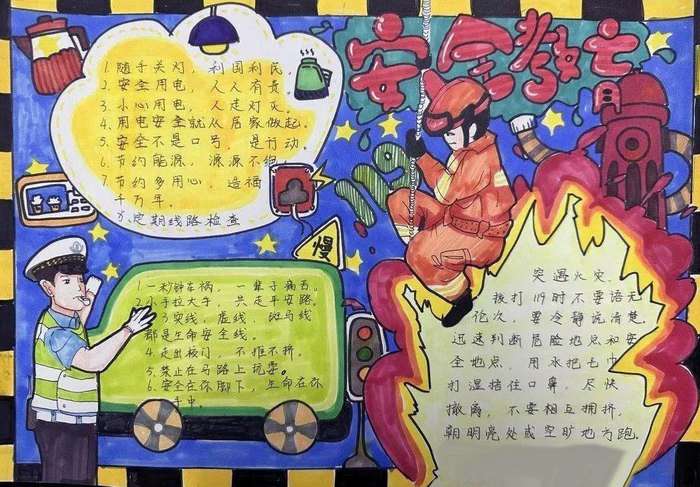 安全教育
119
1.随手关灯，利国利民。
2.安全用电，人人有责
3.小心用电，人走灯灭。
4.用电安全就从居家做起。
5.安全不是口号，是行动。
6.节约能源，源源不绝
7.节约多用心，造福
千万年。
8.定期线路检查
慢
1.一秒钟车祸，一辈子痛苦。
2.小手拉大手，共走平安路。
3.实线，虚线，斑马线
都是生命安全线。
4.走出校门，不推不挤。
5.禁止在马路上玩耍。
6.安全在你脚下，生命在你
手中。
突遇火灾，
拨打119时不要语无
伦次，要冷静说清楚，
迅速判断危险地点和安
全地点，用水把毛巾
打湿捂住口鼻，尽快
撤离，不要相互拥挤，
朝明亮处或空旷地方跑。